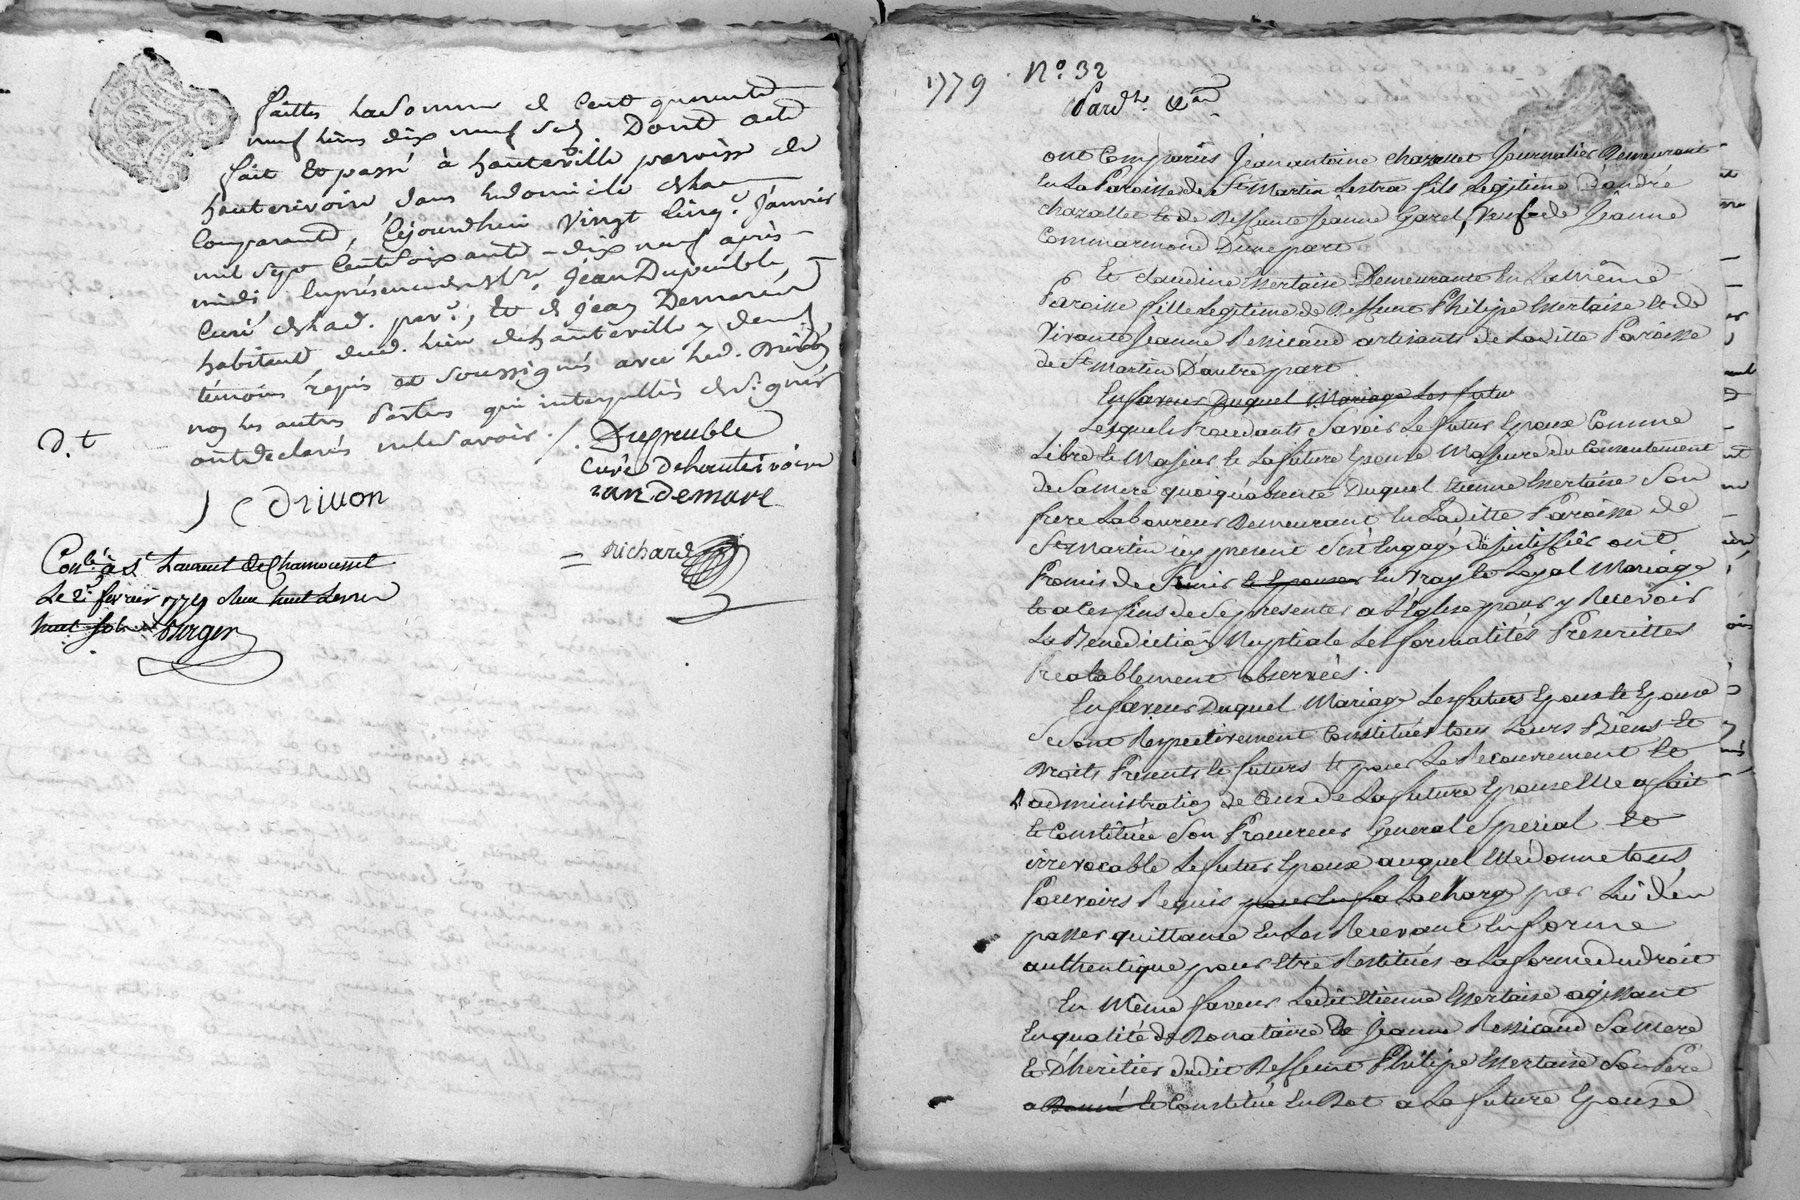 faittes la Somme de Cent quarante
neuf livres dix neuf Sols. Dont acte
fait et passé à hauteville paroisse de
hauterivoire dans le domicile de la
Comparante, Cejourdhui Vingt Cinq.e Janvier
mil Sept Cent Soixante-dix neuf après-
midi, En présence de Mre Jean Dupeuble,
Curé de lad. par.e, et de Jean Demare
habitant dud. lieu de hauteville, deux
témoins requis et Soussignés avec led. Drivon
non les autres Parties qui interpellés de Signer
ont déclarés ne le Savoir./.
D.t
Dupeuble
Curé De hauterivoire
Drivon
Jan demare
Richard
Con.lé à St Laurent de Chamousset
Le 2.e février 1779
Burgen
1779 N.o 32
Pard.t &.a
ont Comparûs Jean antoine Chazallet Journalier Demeurant
En La Paroisse de St Martin Lestra fils Legitime D'andré
Chazallet et de Deffunte Jeanne Garel, Veuf de Jeanne
Commarmond D'une part
Et Claudine Essertaise Demeurante En La même
Paroisse fille Legitime de Deffunt Philipe Essertaise et de
Vivante Jeanne Ressicaud artisants de Laditte Paroisse
de St Martin D'autre part
En faveur Duquel Mariage Les futur
Lesquels Procedants Savoir Le futur Epoux Comme
Libre et Majeur et La future Epouse Majeure du Consentement
de Sa Mere quoiqu'absente Duquel Etienne Essertaise Son
frere Laboureur Demeurant En Laditte Paroisse de
St Martin icy present S'est Engagé de justiffier ont
Promis de S'unir et Epouser En Vray et Loyal Mariage
et a Ces fins de Se presenter a L'Eglise pour y Recevoir
La Benediction Nuptiale Les formalités Prescrittes
Prealablement observées.
En faveur Duquel Mariage Les futurs Epoux et Epouse
Se Sont Respectivement Constitués tous Leurs Biens Et
Droits Presents et futurs et pour Le Recouvrement Et
administration de Ceux de La future Epouse Elle a fait
et Constitüé Son Procureur General Special Et
irrevocable Le futur Epoux auquel Elle donne tous
Pouvoirs Requis La charge par Lui d'En
passer quittance En Les Recevant En forme
authentique pour Etre Restitués a La forme du droit
En Même faveur Ledit Etienne Essertaise agissant
En qualité de Donataire de Jeanne Ressicaud Sa Mere
Et D'heritier dudit Deffunt Philipe Essertaise Son Pere
a Donné et Constitué En Dot a La future Epouse